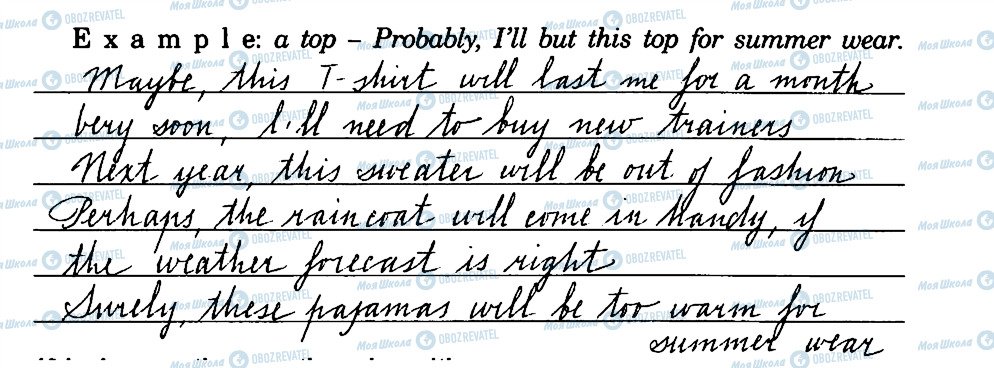 E x a m p l e: a top – Probably, I'll but this top for summer wear.
Maybe, this T-shirt will last me for a month
Very soon, I'll need to buy new trainers
Next year, this sweater will be out of fashion
Perhaps, the raincoat will come in handy, if
the weather forecast is right
Surely, these pajamas will be too warm for
summer wear